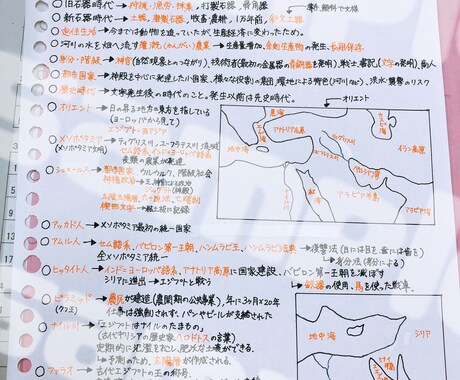 ○旧石器時代→狩猟・漁労・採集、打製石器、骨角器
○新石器時代→土器、磨製石器、牧畜・農耕、(1万年前)、彩文土器
○定住生活→今までは動物を追っていたが、生産経済に変わったため。
○河川の水を畑へ流す灌漑(かんがい)農業→生産量増加、余剰生産物の発生、長期保存
○身分・階級→神官(自然現象とのつながり)、技術者(最初の金属器の青銅器を発明)、戦士、書記、(文字の発明)、商人
○都市国家→神殿を中心に発達した小国家、様々な役割の集団
○歴史時代→文字発生後の時代のこと。発生以前は先史時代。
○オリエント→日の昇る地方=東方を指している
(ヨーロッパから見て)
エジプト・西アジア
オリエント
黒海
アナトリア高原
地中海
ティグリス川
イラン高原
紅海
アラビア半島
アラビア海
○メソポタミア→ティグリス川、ユーフラテス川流域
(メソポタミア文明)
セム語系、インド=ヨーロッパ語系
麦類の農業が発達
○シュメール人→都市国家、ウル、ウルク、階級社会
神権政治→王、神官による政治
ジッグラト(神殿)
太陰太陽暦、六十進法、七曜制
楔形文字→粘土板に記録
○アッカド人→メソポタミア最初の統一国家
○アムル人→セム語系、バビロン第一王朝、ハンムラビ王、ハンムラビ法典→復讐法(目には目を歯には歯を)
全メソポタミア統一
→身分法(身分による)
○ヒッタイト人→インド=ヨーロッパ語系、アナトリア高原に国家建設、バビロン第一王朝を滅ぼす
シリアに進出→エジプトと戦う
→鉄器の使用、馬を使った戦車。
○ピラミッド→農民が建造(農閑期の公共事業)、年に3ヶ月×20年
(クフ王)
仕事は強制されず、パンやビールが支給された
○ナイル川→「エジプトはナイルのたまもの」
(古代ギリシアの歴史家ヘロドトスの言葉)
定期的に氾濫をおこし、肥沃な土壌ができる。
→予測のため、太陽暦が作成される。
○ファラオ→古代エジプトの王の称号。
地中海
シリア